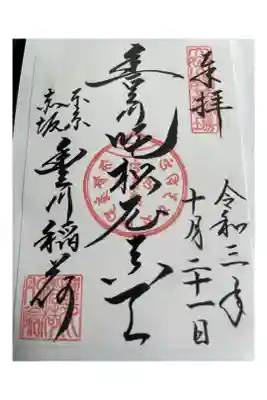 奉拝
令和三年
十月二十一日
豊川吒枳尼真天
東京
赤坂
豊川稲荷